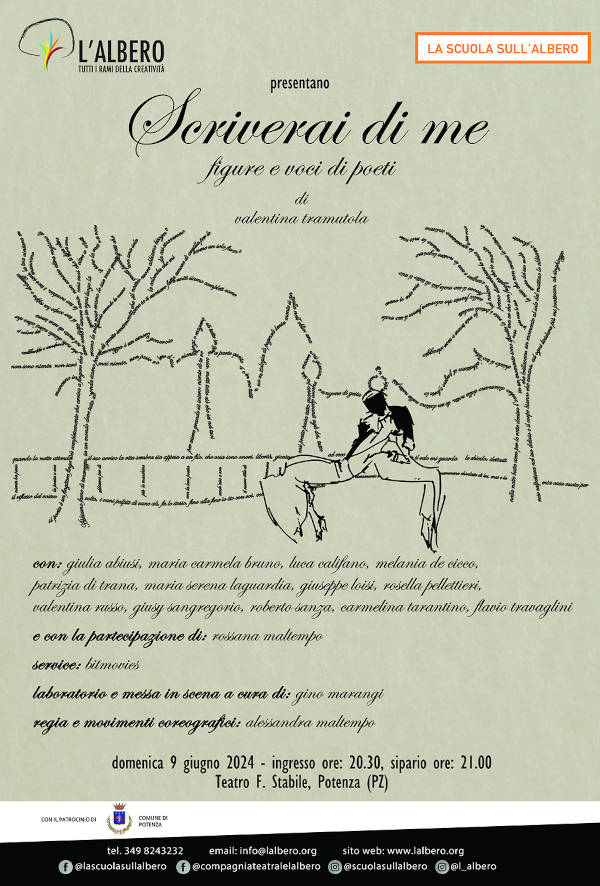 L'ALBERO
TUTTI I RAMI DELLA CREATIVITÀ
LA SCUOLA SULL'ALBERO
presentano
Scriverai di me
figure e voci di poeti
di
valentina tramutola
con: giulia abiusi, maria carmela bruno, luca califano, melania de cicco,
patrizia di trana, maria serena laguardia, giuseppe loisi, rosella pellettieri,
valentina russo, giusy sangregorio, roberto sanza, carmelina tarantino, flavio travaglini
e con la partecipazione di: rossana maltempo
service: bitmovies
laboratorio e messa in scena a cura di: gino marangi
regia e movimenti coreografici: alessandra maltempo
domenica 9 giugno 2024 - ingresso ore: 20.30, sipario ore: 21.00
Teatro F. Stabile, Potenza (PZ)
CON IL PATROCINIO DI
COMUNE DI
POTENZA
tel. 349 8243232 email: info@lalbero.org sito web: www.lalbero.org
@lascuolasullalbero @compagniateatralelalbero @scuolasullalbero @l_albero